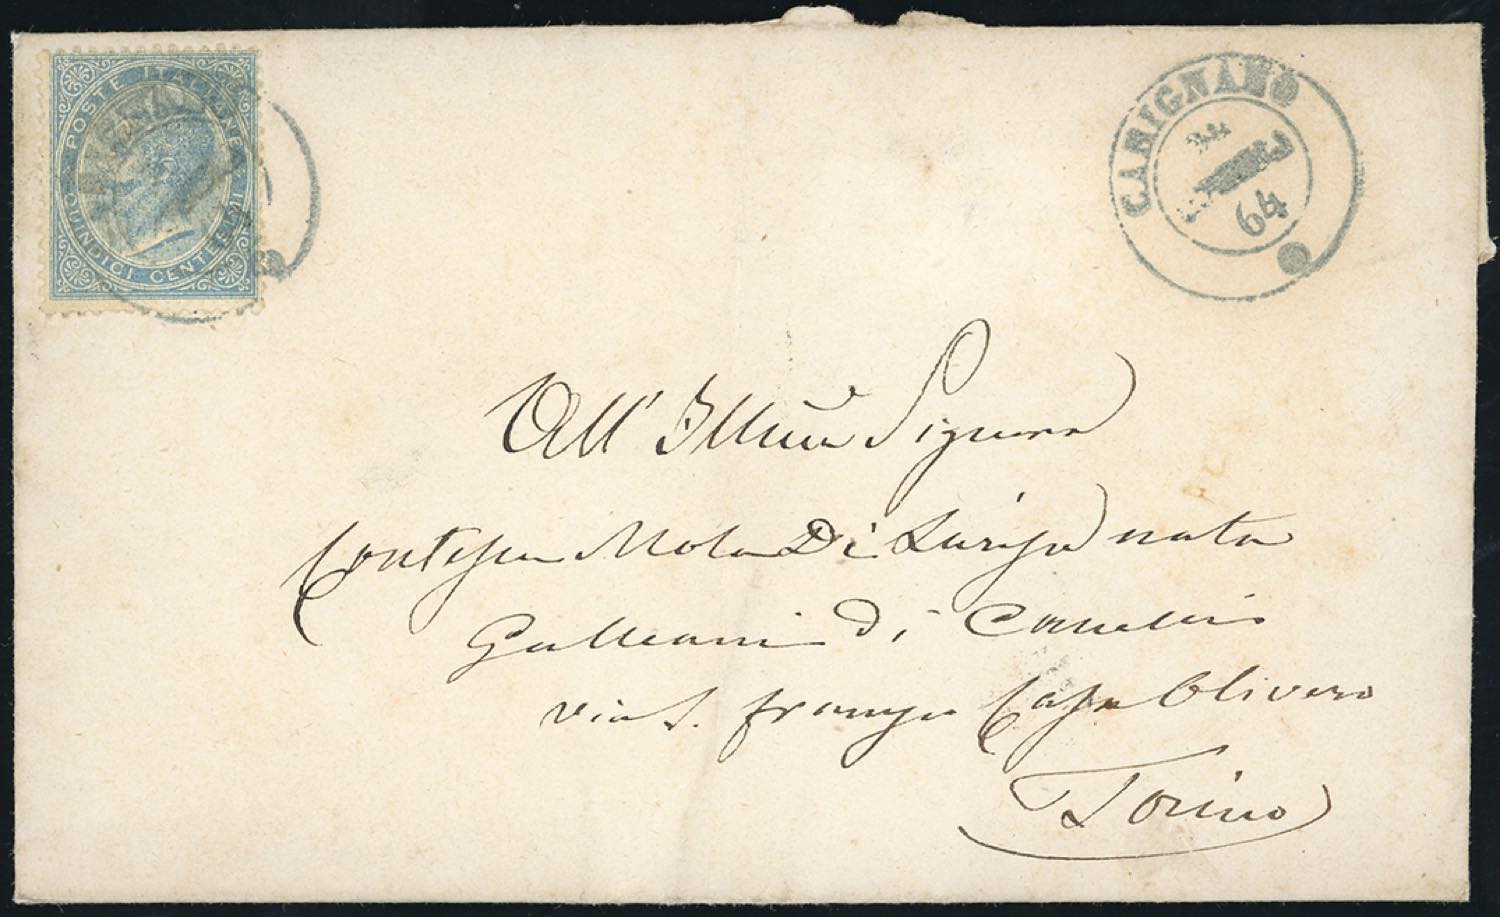 POSTE ITALIANE
QUINDICI CENTESIMI
CARIGNANO
64
All' Illma Signora
Contessa Mola Di Larissé nata
Galleani di Canelli
via S. Franco Casa Olivero
Torino